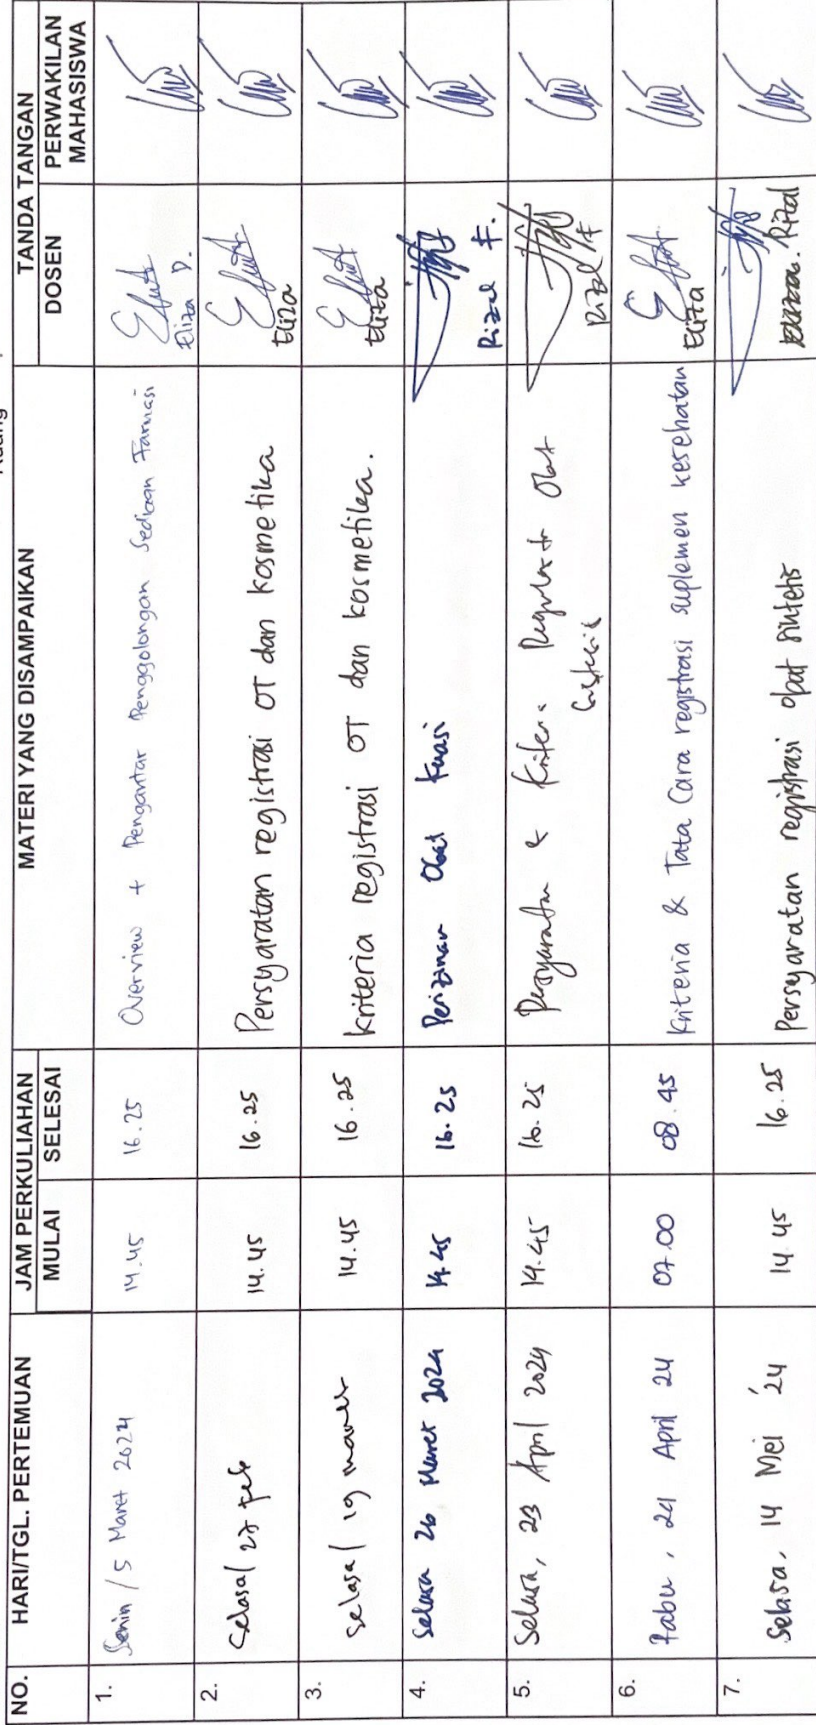 NO. HARI/TGL. PERTEMUAN JAM PERKULIAHAN MATERI YANG DISAMPAIKAN TANDA TANGAN
MULAI SELESAI DOSEN PERWAKILAN
MAHASISWA
1. Senin / 5 Maret 2024 14.45 16.25 Overview + Pengantar Penggolongan Sediaan Farmasi
Eliza D.
2. Selasa/ 27 feb 14.45 16.25 Persyaratan registrasi OT dan kosmetika
Eliza
3. Selasa/ 19 maret 14.45 16.25 kriteria registrasi OT dan kosmetika.
Eliza
4. Selasa 26 Maret 2024 14.45 16.25 Perizinan Obat Kuasi
Rizal F.
5. Selasa, 23 April 2024 14.45 16.25 Persyaratan & Kriteria Obat
Rizal F
6. Rabu, 24 April 24 07.00 08.45 Kriteria & Tata Cara registrasi suplemen kesehatan
Eliza
7. Selasa, 14 Mei '24 14.45 16.25 Persyaratan registrasi obat sintetis
Rizal